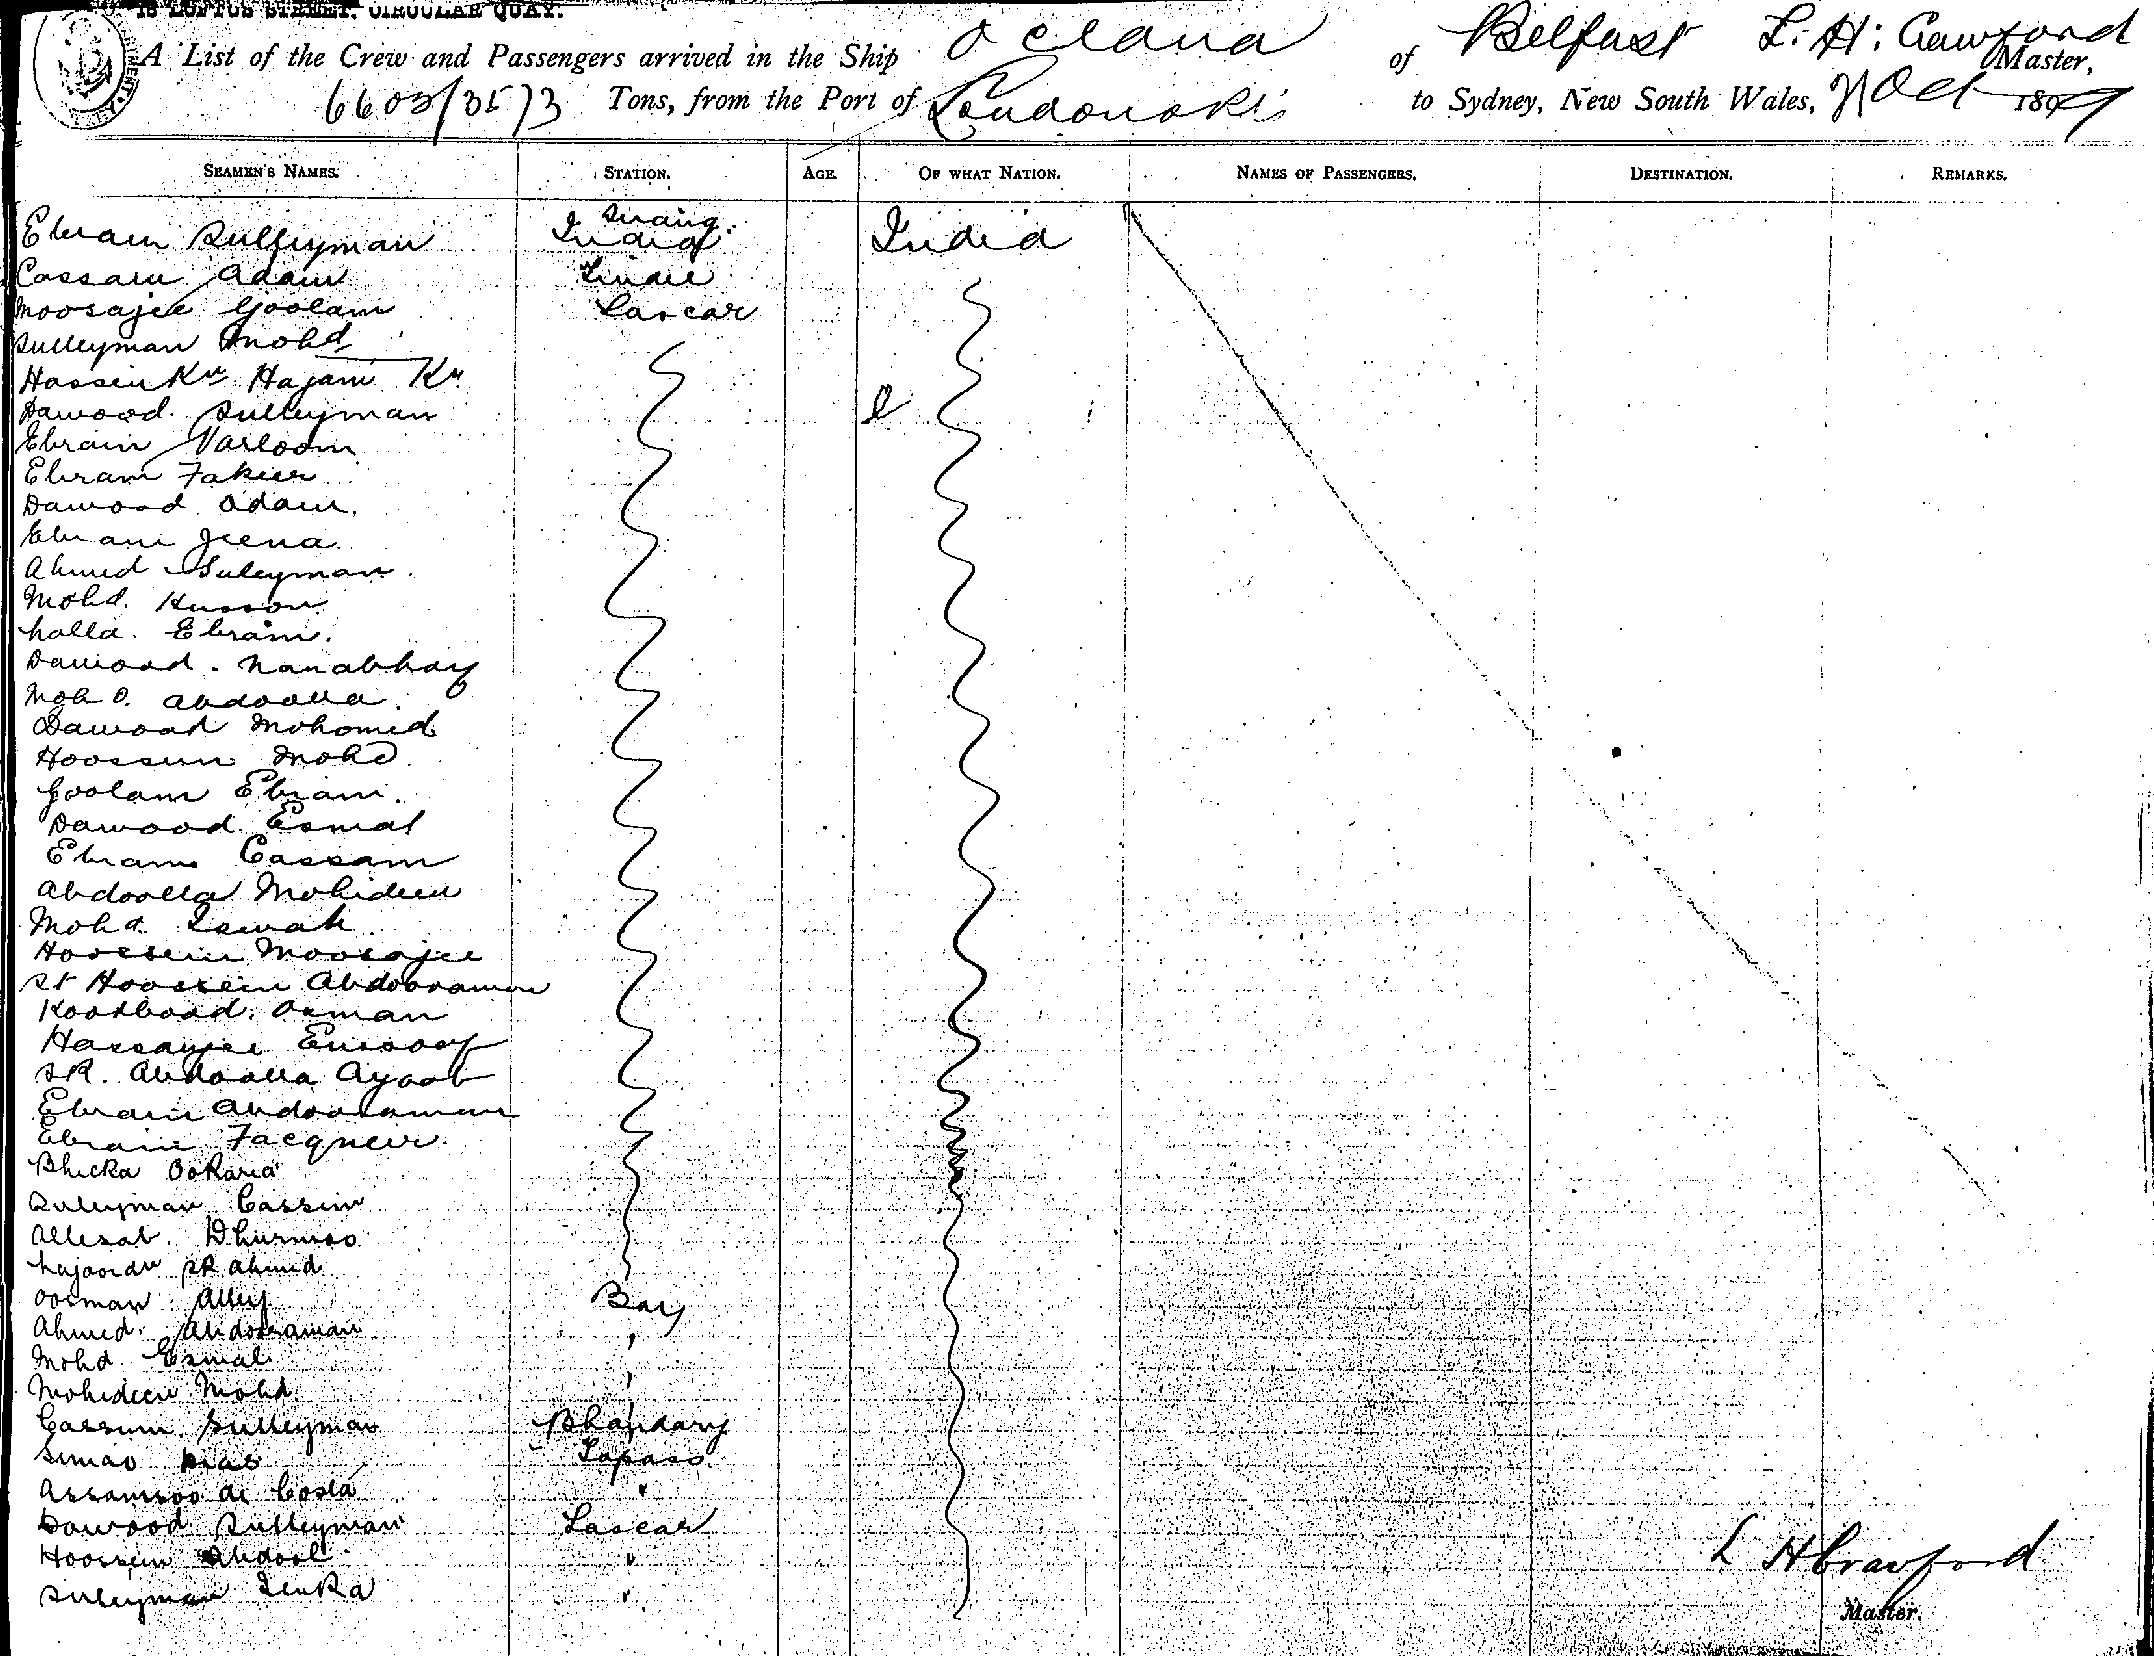 18 LOFTUS STREET, CIRCULAR QUAY.
A List of the Crew and Passengers arrived in the Ship Oceana of Belfast L. H. Crawford Master,
6603/3573 Tons, from the Port of London to Sydney, New South Wales, Oct 1899
SEAMEN'S NAMES. STATION. AGE OF WHAT NATION. NAMES OF PASSENGERS. DESTINATION. REMARKS.
Ebram Sulleyman Serang India
Cassam Adam Tindal
Moosajee Goolam Lascar
Sulleyman Mohd
Hassen Hajam
Dawood Sulleyman
Ebram
Ebram Fakeer
Dawood Adam.
Ebram Jeena
Ahmed Suleyman
Mohd. Husson
Ebram.
Dawood. Nanabhay
Mohd. Abdoolla
Dawood Mohomed
Hoossein Mohd
Goolam Ebram.
Dawood Esmal
Ebram Cassam
Abdoolla Mohideen
Mohd.
Hoossein Moosajee
Hoossein Abdooraman
Osman
Hassanjee Eusoof
SK. Abdoolla Ayoob
Ebram Abdooraman
Ebram
Bhicka
Suleyman Cassim
SK Ahmed
Oosman Alley Boy
Ahmed Abdooraman "
Mohd. Esmal "
Mohideen Mohd "
Cassum Sulleyman Bhandary
Simao Dias Topass
de Costa "
Dawood Sulleyman Lascar
Hoossein Abdool "
Suleyman "
L H Crawford
Master.